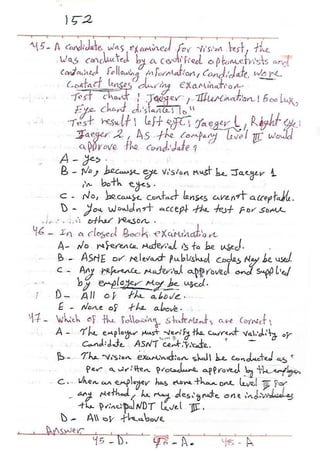 152
45 - A candidate was examined for vision test, the
was conducted by a certified optometrists and
contained following information, Candidate wore
Contact lenses during examination
Test chart : Jaeger, Illumination : 600 Lux,
Eye chart distance : 10"
Test result : left eye : Jaeger 1, Right eye :
Jaeger 2, AS the company level III would
approve the candidate?
A - yes.
B - No, because eye vision must be Jaeger 1
in both eyes.
C - No, because contact lenses aren't acceptable.
D - you wouldn't accept the test for some
other reason.
46 - In a closed Book examination
A - No reference material is to be used.
B - ASME or relevant published codes May be used
C - Any reference material approved and supplied
by employer May be used.
D - All of the above.
E - None of the above.
47 - Which of the following statements are correct:
A - The employer must verify the current validity of
candidate ASNT certificate.
B - The vision examination shall be conducted as
per a written procedure approved by the employer
C - When an employer has more than one level III for
any Method, he may designate one individual as
the principal NDT level III.
D - All of the above
Answer
45 - D. - A. - A